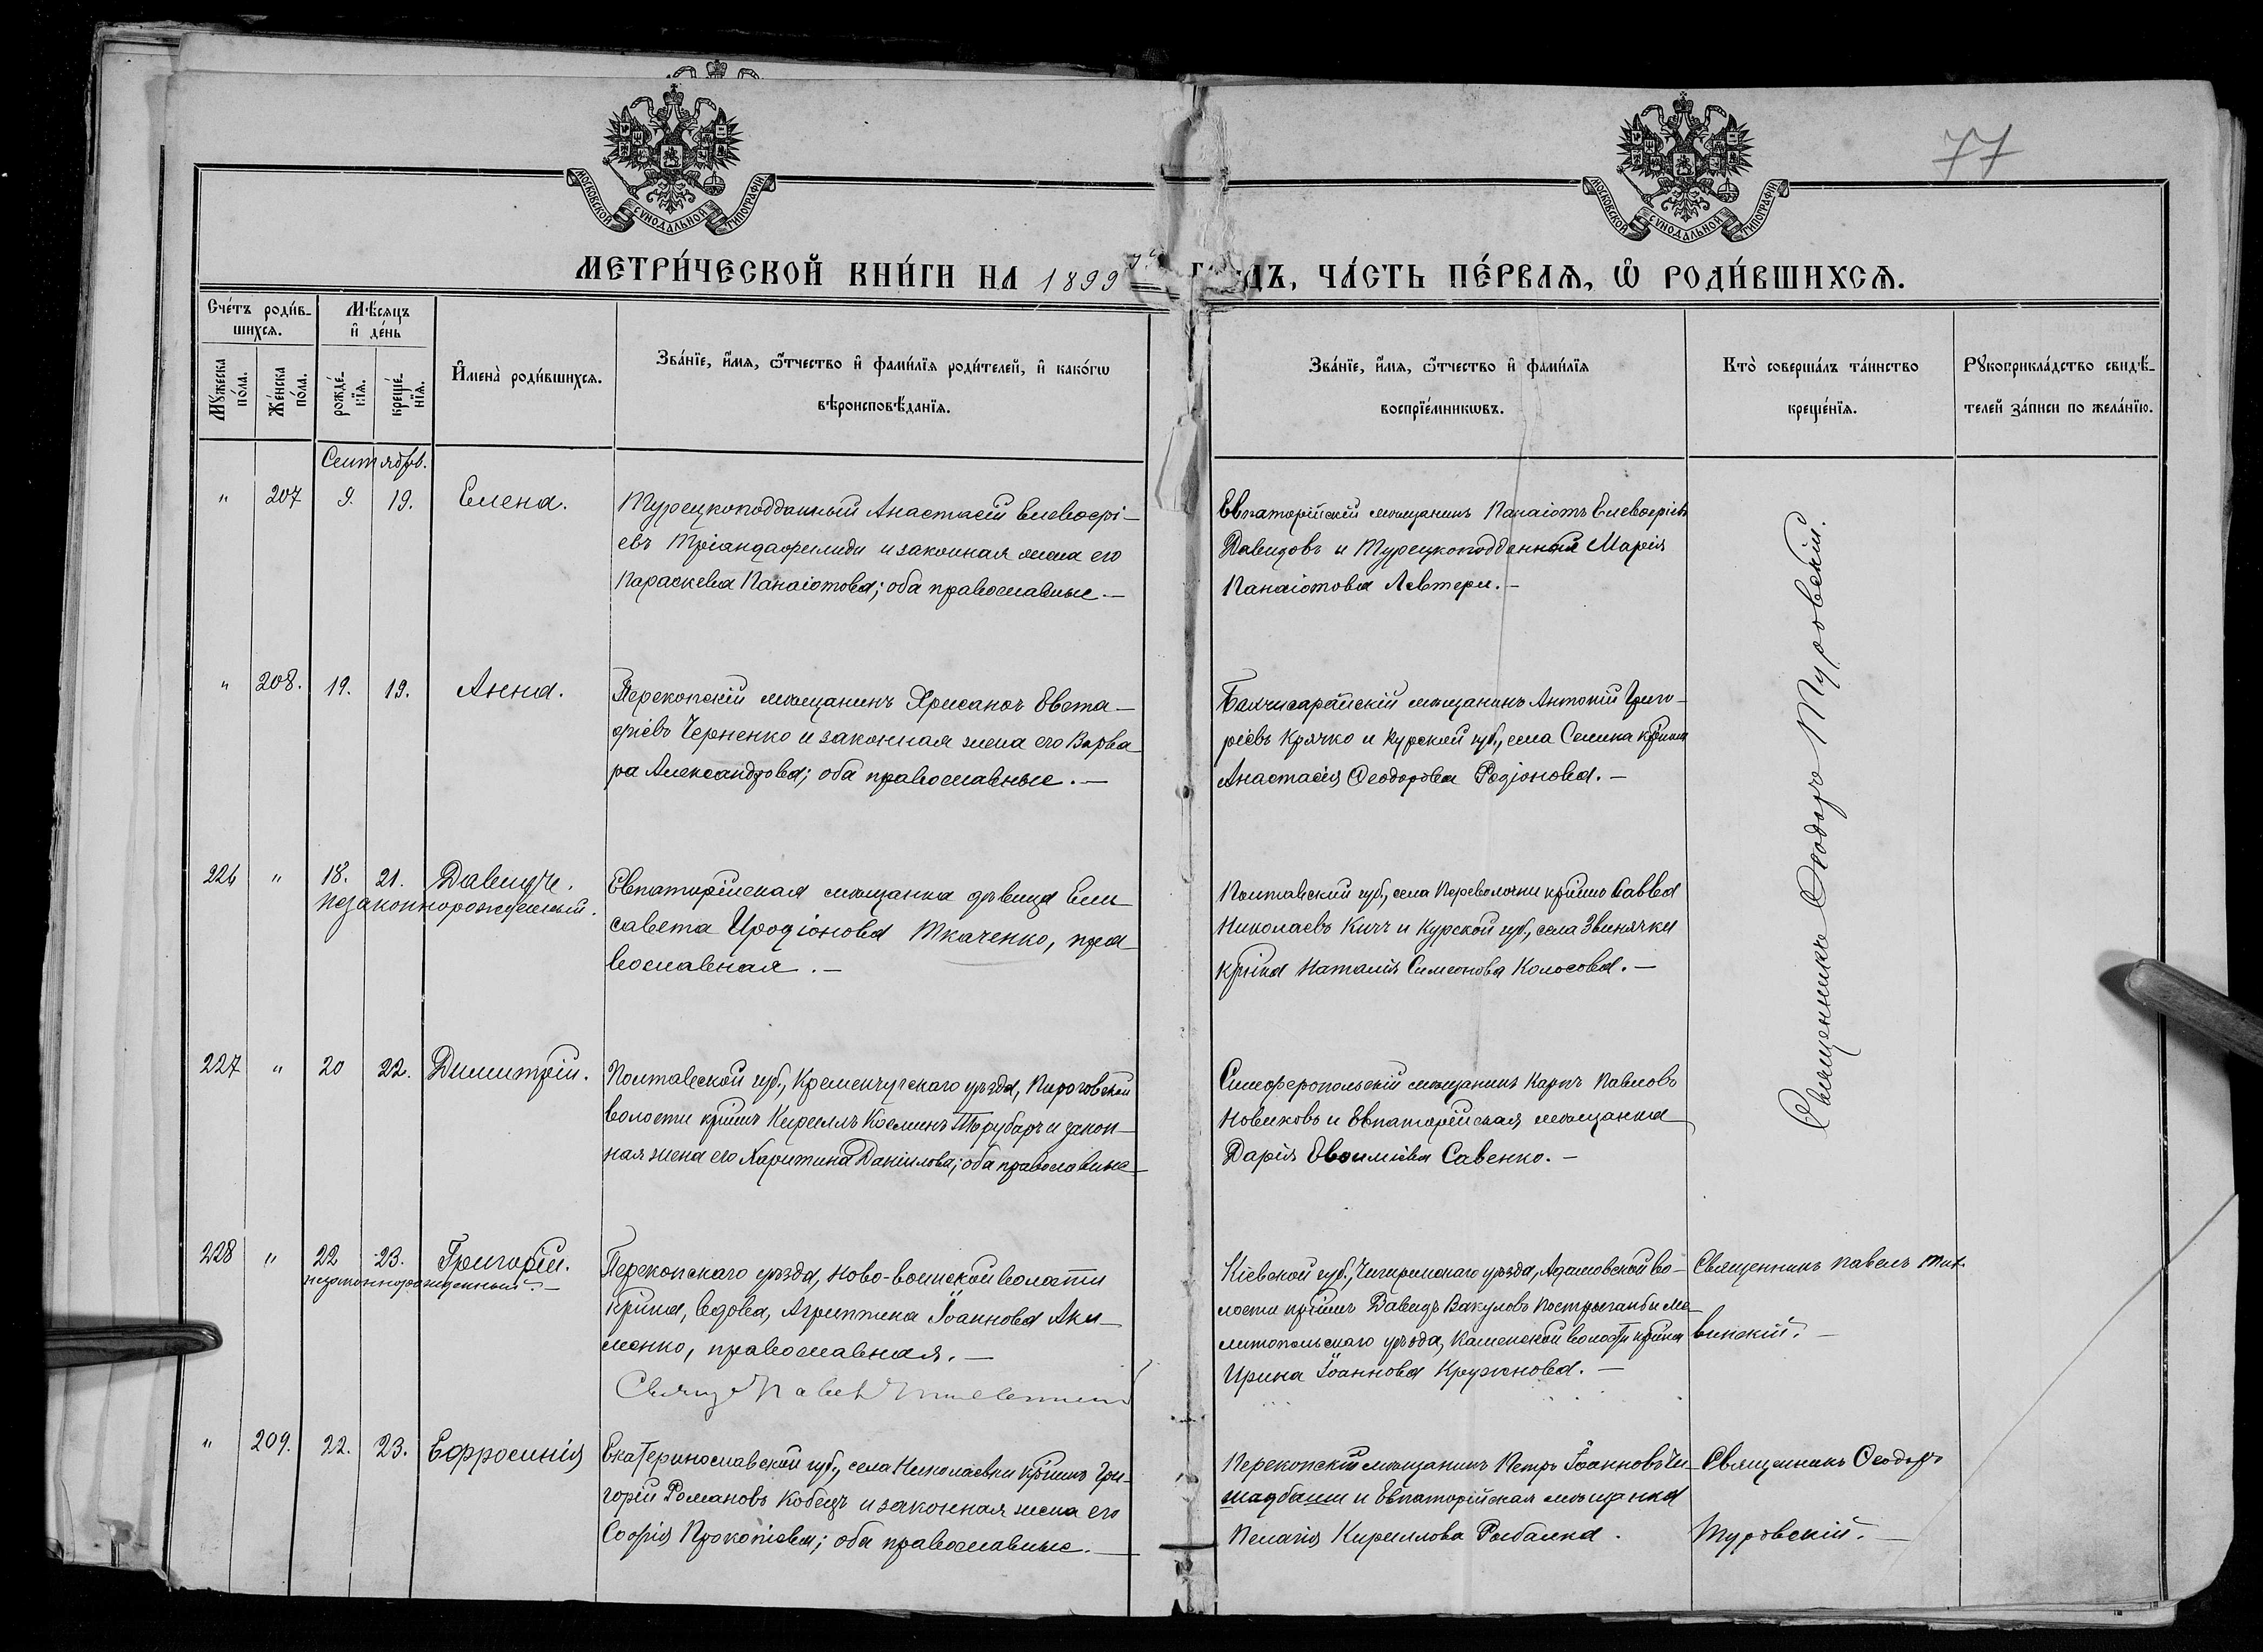 77
МОСКОВСКОЙ СѴНОДАЛЬНОЙ ТИПОГРАФІИ
МОСКОВСКОЙ СѴНОДАЛЬНОЙ ТИПОГРАФІИ
МЕТРИ́ЧЕСКОЙ КНИ́ГИ НА 1899 й ДЪ, ЧА́СТЬ ПЕ́РВАѦ, Ѡ҆ РОДИ́ВШИХСѦ.
Сче́тъ роди́в-
шихсѧ.
Мꙋ́жеска по́ла.
Же́нска по́ла.
Мѣ́сѧцъ
и҆ де́нь
рожде́-нїѧ.
креще́-нїѧ.
И҆мена̀ роди́вшихсѧ.
Зва́нїе, и҆́мѧ, ѻ҆́тчество и҆ фами́лїѧ роди́телей, и҆ како́гѡ
вѣроисповѣ́данїѧ.
Зва́нїе, и҆́мѧ, ѻ҆́тчество и҆ фами́лїѧ
воспрїе́мникѡвъ.
Кто̀ соверша́лъ та́инство
креще́нїѧ.
Рꙋкоприкла́дство свидѣ́-
телей за́писи по жела́нїю.
Сентябрь.
" 207 9. 19. Елена.
Турецкоподданный Анастасій Елевѳері-
евъ Тріандафилиди и законная жена его
Параскева Панаіотова; оба православные.—
Евпаторійскій мѣщанинъ Панаіотъ Елевѳеріевъ
Давидовъ и Турецкоподданная Марія
Панаіотова Левтери.—
" 208. 19. 19. Анна.
Перекопскій мѣщанинъ Хрисанѳъ Евста-
фіевъ Черненко и законная жена его Варва
ра Александрова; оба православные.—
Бахчисарайскій мѣщанинъ Антоній Григо-
ріевъ Крячко и Курской губ., села Сенина кр-нка
Анастасія Ѳеодорова Родіонова.—
226 " 18. 21. Давидъ.
незаконнорожденный.
Евпаторійская мѣщанка дѣвица Ели
савета Иродіонова Ткаченко, пра
вославная.—
Полтавской губ., села Переволочни кр-нинъ Савва
Николаевъ Кичъ и Курской губ., села Звинячки
кр-нка Наталія Симеонова Колосова.—
227 " 20 22. Димитрій.
Полтавской губ., Кременчугскаго уѣзда, Пироговской
волости кр-нинъ Кириллъ Косминъ Торубаръ и закон-
ная жена его Харитина Даніилова; оба православные—
Симферопольскій мѣщанинъ Карпъ Павловъ
Новиковъ и Евпаторійская мѣщанка
Дарія Евѳиміева Савенко.—
Священникъ Ѳеодоръ Туровскій.
228 " 22 23. Григорій.
незаконнорожденный.—
Перекопскаго уѣзда, Ново-воинской волости
кр-нка, вдова, Агриппина Іоаннова Аки-
менко, православная.—
Кіевской губ., Чигиринскаго уѣзда, Адамовской во-
лости кр-нинъ Давидъ Вакуловъ и Ме-
литопольскаго уѣзда, Каменской волости кр-нка
Ирина Іоаннова Кружнова.—
Священникъ Павелъ Тих-
винскій.—
Свящ. Павелъ Тихвинскій
" 209. 22. 23. Ефросинія
Екатеринославской губ., села Николаевки кр-нинъ Гри-
горій Романовъ Кобецъ и законная жена его
Софія Прокопіева; оба православные.—
Перекопскій мѣщанинъ Петръ Іоанновъ Чи-
шадбаши и Евпаторійская мѣщанка
Пелагія Кириллова Рыбалка.
Священникъ Ѳеодоръ
Туровскій.—